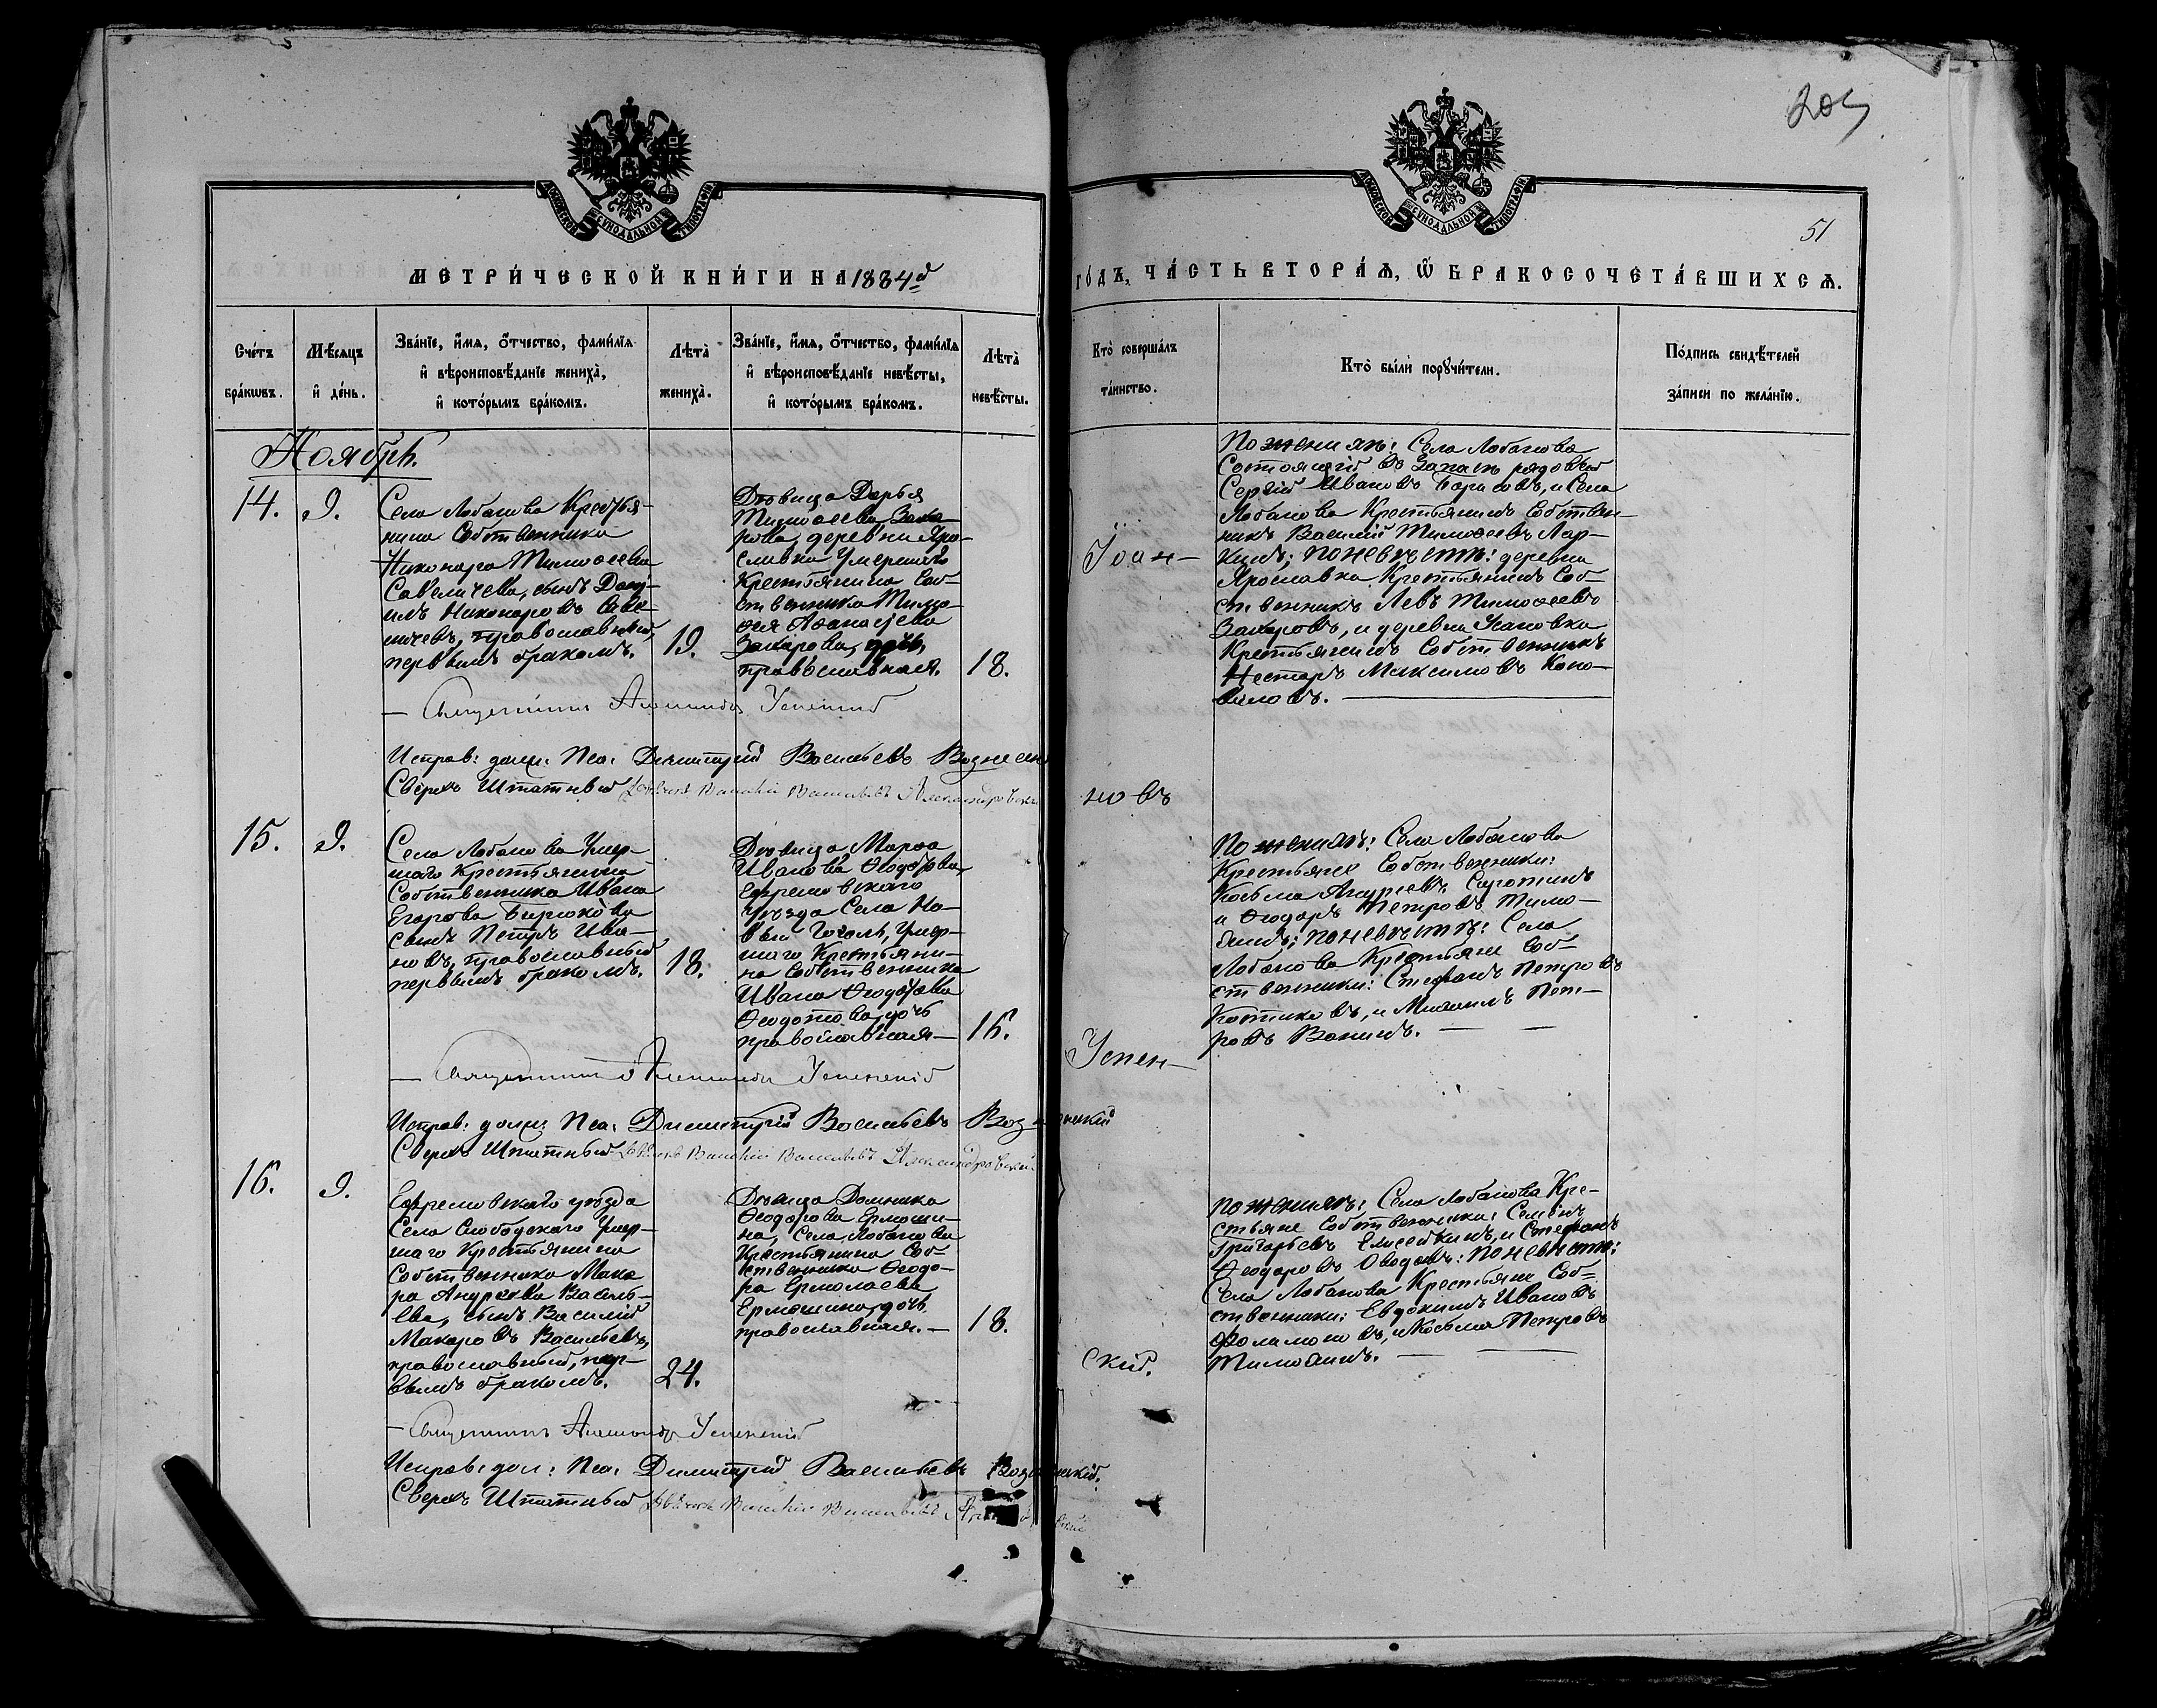 205
51
МОСКОВСКОЙ СѴНОДАЛЬНОЙ ТИПОГРАФІИ
МОСКОВСКОЙ СѴНОДАЛЬНОЙ ТИПОГРАФІИ
МЕТРИ́ЧЕСКОЙ КНИ́ГИ НА 1884й
ГО́ДЪ, ЧА́СТЬ ВТОРА́Я, Ѿ БРАКОСОЧЕТА́ВШИХСЯ.
Сче́тъ бра́кѡвъ.
Мѣ́сяцъ и҆ де́нь.
Зва́нїе, и҆́мѧ, ѻ҆́тчество, фами́лїѧ и҆ вѣроисповѣ́данїе жениха̀, и҆ кото́рымъ бра́комъ.
Лѣта̀ жениха̀.
Зва́нїе, и҆́мѧ, ѻ҆́тчество, фами́лїѧ и҆ вѣроисповѣ́данїе невѣ́сты, и҆ кото́рымъ бра́комъ.
Лѣта̀ невѣ́сты.
Кто̀ соверша́лъ та́инство.
Кто̀ бы́ли порꙋчи́тели.
По́дпись свидѣ́телей за́писи по жела́нїю.
Ноябрь.
14.
9.
Села Лобанова Крестья-
нина Собственника
Никонора Тимоѳеева
Савеличева, сынъ Дани-
илъ Никоноровъ Саве-
личевъ, православный,
первымъ бракомъ.
19.
Дѣвица Дарья
Тимоѳеева Заха-
рова, деревни Яро-
славки Умершаго
Крестьянина Соб-
ственника Тимо-
ѳея Аѳанасьева
Захарова, дочь,
православная.
18.
Іоан-
По женихѣ: Села Лобанова
Состоящій въ Запасѣ рядовой
Сергій Ивановъ Борисовъ, и Села
Лобанова Крестьянинъ Собствен-
никъ Василій Тимоѳеевъ Лар-
кинъ; по невѣстѣ: деревни
Ярославки Крестьянинъ Соб-
ственникъ Левъ Тимоѳеевъ
Захаровъ, и деревни
Крестьянинъ Собственникъ
Несторъ Максимовъ Коно-
валовъ.
Священникъ Успенскій
Исправ: долж: Пса: Димитрій Васильевъ Вознесен
Сверхъ Штатный Василій Васильевъ Александровскій
новъ
15.
9.
Села Лобанова Умер-
шаго Крестьянина
Собственника Ивана
Егорова Бирюкова
сынъ Петръ Ива-
новъ, православный
первымъ бракомъ.
18.
Дѣвица Марѳа
Иванова Ѳеодотова,
Ефремовскаго
Уѣзда Села Но-
выя Гоголь, Умер-
шаго Крестьяни-
на Собственника
Ивана
Ѳеодотова, дочь
православная
16.
По женихѣ: Села Лобанова
Крестьяне Собственники:
Косьма Андреевъ Сиротинъ
и Ѳеодоръ Петровъ Тимо-
ѳинъ; по невѣстѣ: Села
Лобанова Крестьяне Соб-
ственники: Стефанъ Петровъ
Котиковъ, и Михаилъ Пет-
ровъ Ванинъ.
Успен-
Священникъ Успенскій
Исправ: долж: Пса: Димитрій Васильевъ
Сверхъ Штатный Василій Васильевъ Александровскій
16.
9.
Ефремовскаго уѣзда
Села Слободскаго Умер-
шаго Крестьянина
Собственника Мака
ра Андреева Василь-
ева, сынъ Василій
Макаровъ Васильевъ,
православный, пер-
вымъ бракомъ.
24.
Дѣвица Домника
Ѳеодорова Ермоши-
на, Села Лобанова
Крестьянина Соб-
ственника Ѳеодо-
ра Ермолаева
Ермошина, дочь
православная.
18.
скій.
По женихѣ: Села Лобанова Кре-
стьяне Собственники: Семенъ
Григорьевъ Елисейкинъ, и Стефанъ
Ѳеодоровъ: по невѣстѣ:
Села Лобанова Крестьяне Соб-
ственники: Евдокимъ Ивановъ
Филимоновъ, и Косьма Петровъ
Тимоѳинъ.
Священникъ Успенскій
Исправ: дол: Пса: Димитрій Васильевъ
Сверхъ Штатный Василій Васильевъ